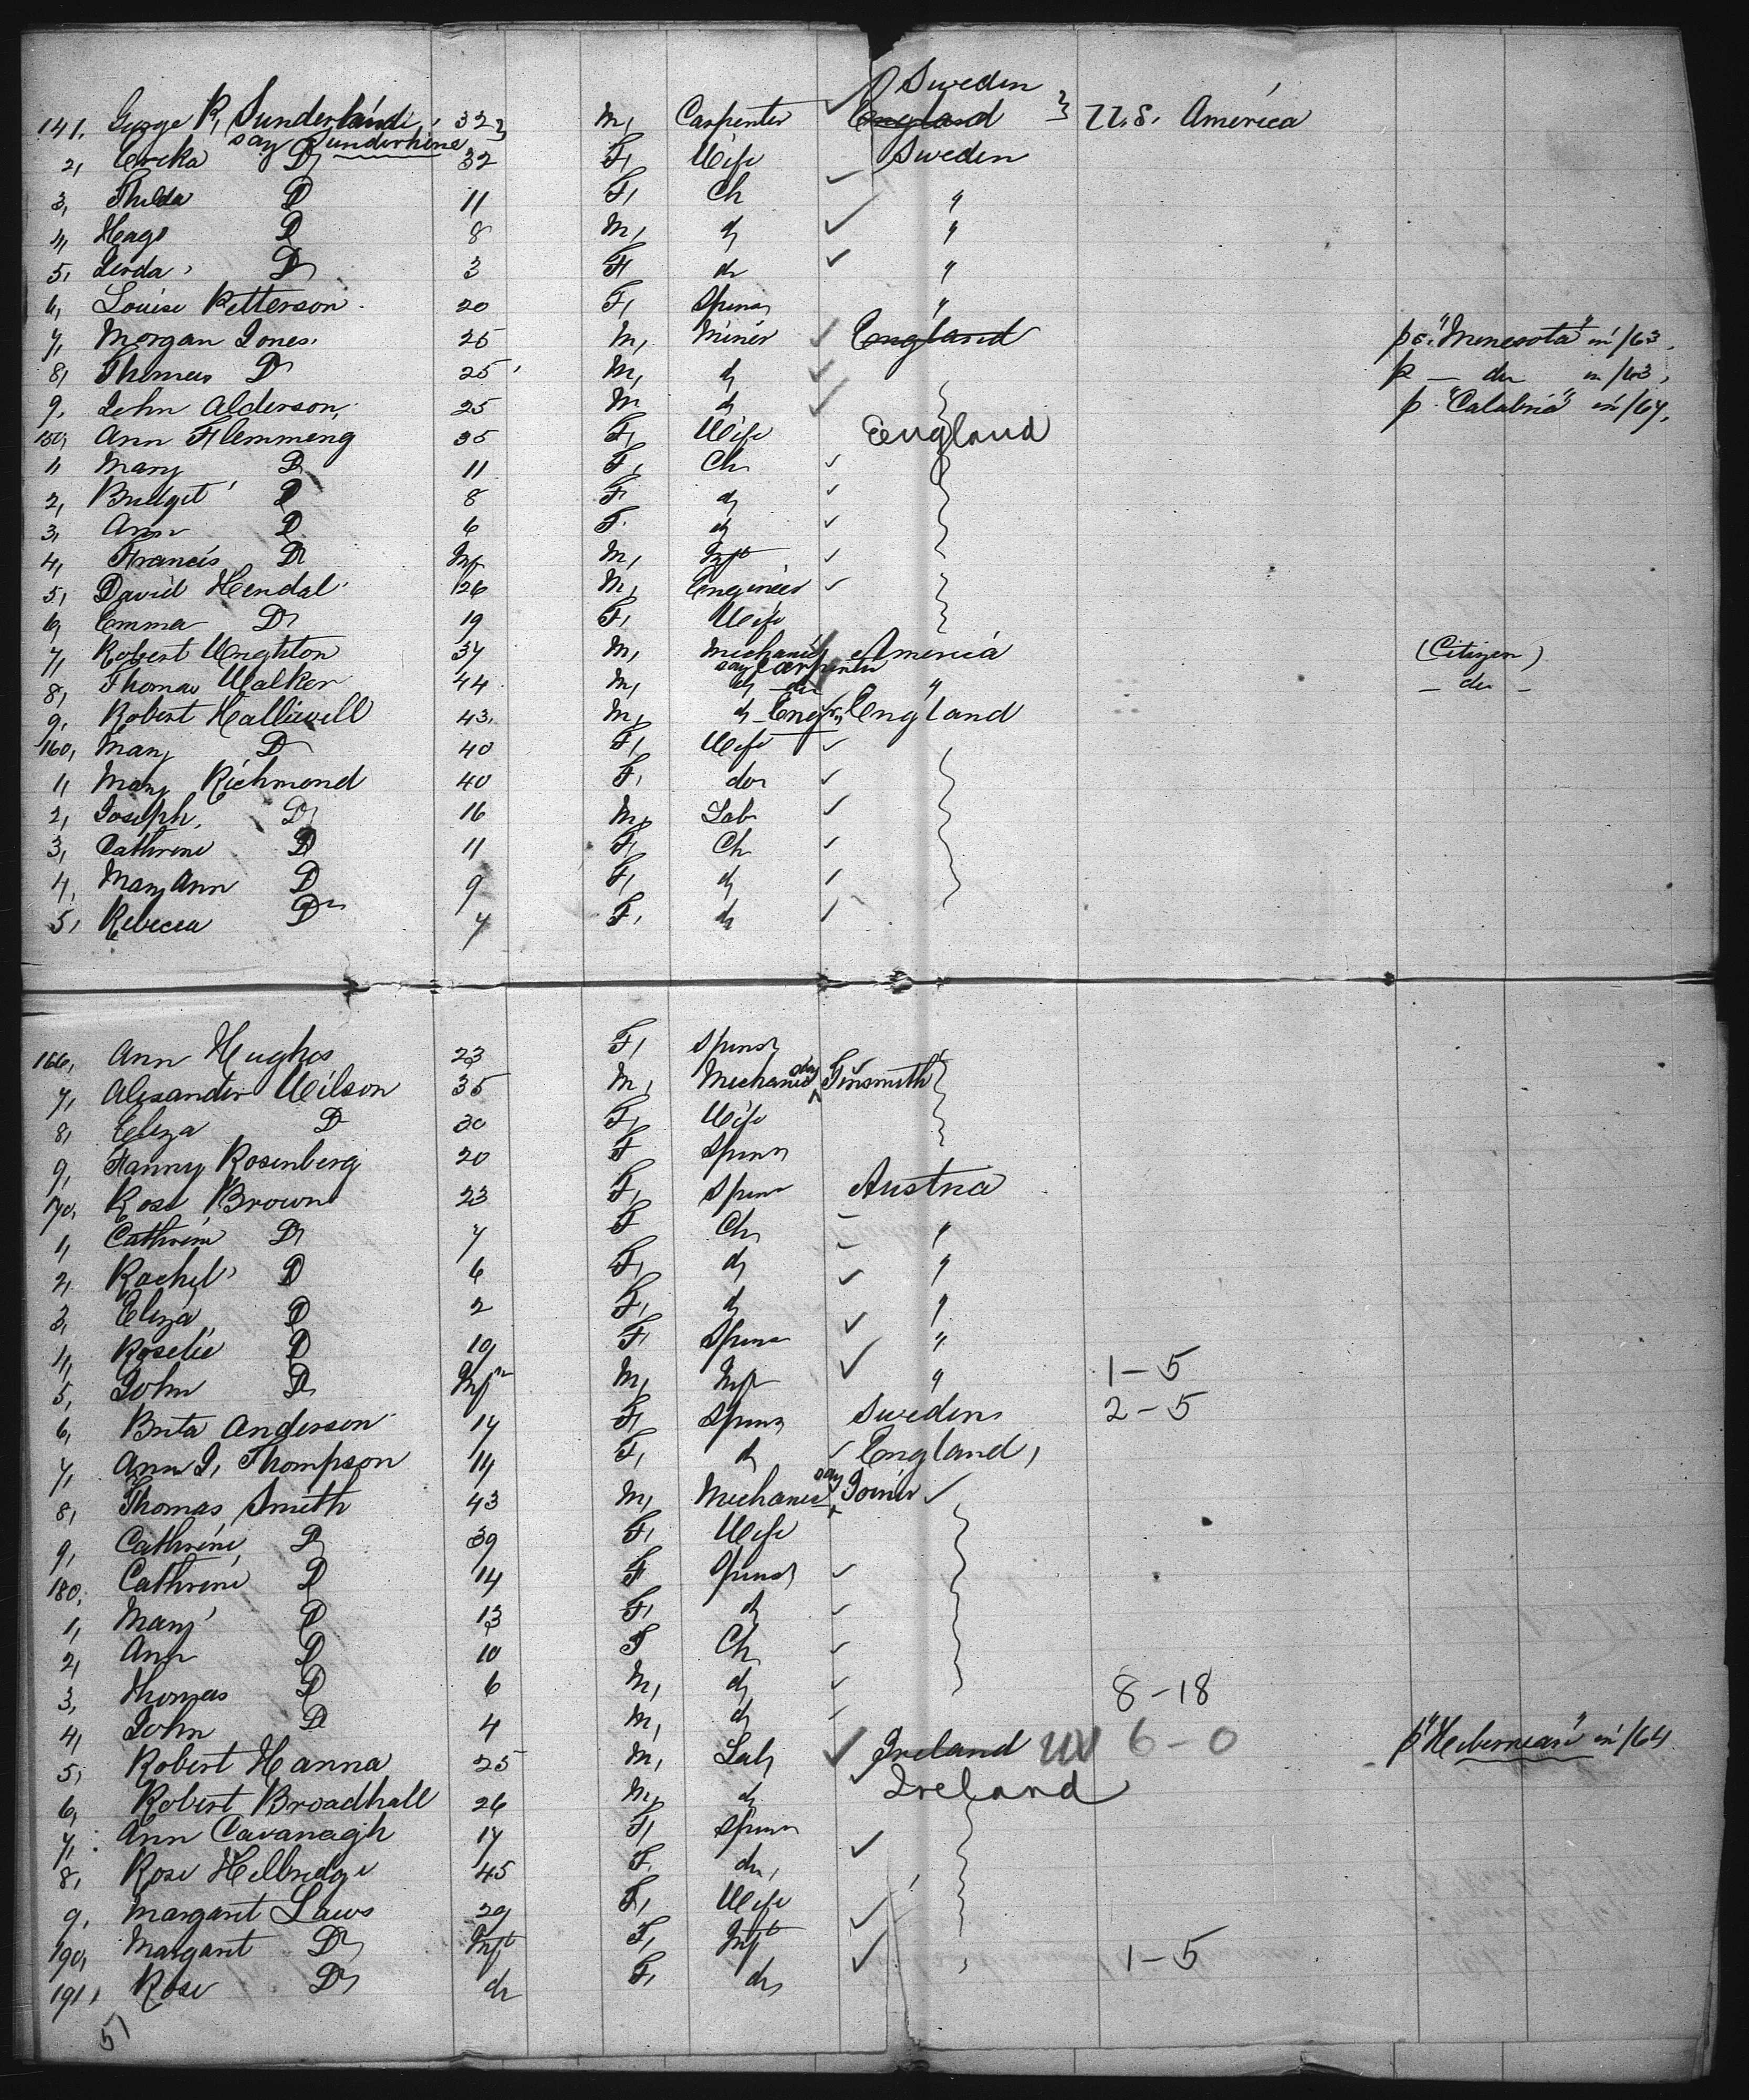 Sweden
141. George R, Sunderland 32 M, Carpenter England U.S. America
say Sunderhine
2, Ericka Do 32 F, Wife Sweden
3, Thilda Do 11 F, Ch "
4, Hago Do 8 M, do "
5, Gerda Do 3 F do "
6, Louise Petterson 20 F, Spins "
7, Morgan Jones 25 M, Miner England pr "Minesota" in /63
8, Thomas Do 25 M, do p — do in /63,
9, John Alderson 25 M do p "Calabria" in /64,
150, Ann Flemming 35 F, Wife England
1, Mary Do 11 F, Ch
2, Bridget Do 8 F do
3, Ann Do 6 F. do
4, Francis Do Inf M, Inft
5, David Hendal 26 M, Engineer
6, Emma Do 19 F, Wife
7, Robert Wrighton 34 M, Mechanic America (Citizen)
say Carpenter
8, Thomas Walker 44 M, do - do " — do —
9, Robert Halliwell 43, M, do - Engr, England
160, Mary Do 40 F, Wife
1, Mary Richmond 40 F, do
2, Joseph, Do 16 M, Lab
3, Cathrine Do 11 F, Ch
4, Mary Ann Do 9 F, do
5, Rebecca Do 7 F, do
166, Ann Hughes 23 F, Spins
7, Alexander Wilson 35 M, Mechanic say Tinsmith
8, Eliza Do 30 F, Wife
9, Fanny Rosenberg 20 F Spins
170, Rose Brown 23 F, Spins Austria
1, Cathrine Do 7 F Ch "
2, Rachel Do 6 F, do "
3, Eliza Do 2 F, do "
4, Roselie Do 19 F, Spins "
5, John Do Inf M, Inf " 1-5
6, Brita Anderson 17 F, Spins Sweden 2-5
7, Ann J, Thompson 19 F, do England,
8, Thomas Smith 43 M, Mechanic say Joiner
9, Cathrine Do 39 F, Wife
180, Cathrine Do 14 F Spins
1, Mary Do 13 F, do
2, Ann Do 10 F Ch
3, Thomas Do 6 M, do 8-18
4, John Do 4 M, do 6-0
5, Robert Hanna 25 M, Lab Ireland p "Hibernian" in /64
6, Robert Broadhall 26 M, do Ireland
7, Ann Cavanagh 17 F, Spins
8, Rose Helbridge 45 F, do,
9, Margaret Laws 29 F, Wife
190, Margaret Do Inft F, Inft 1-5
191, Rose Do do F, do
51